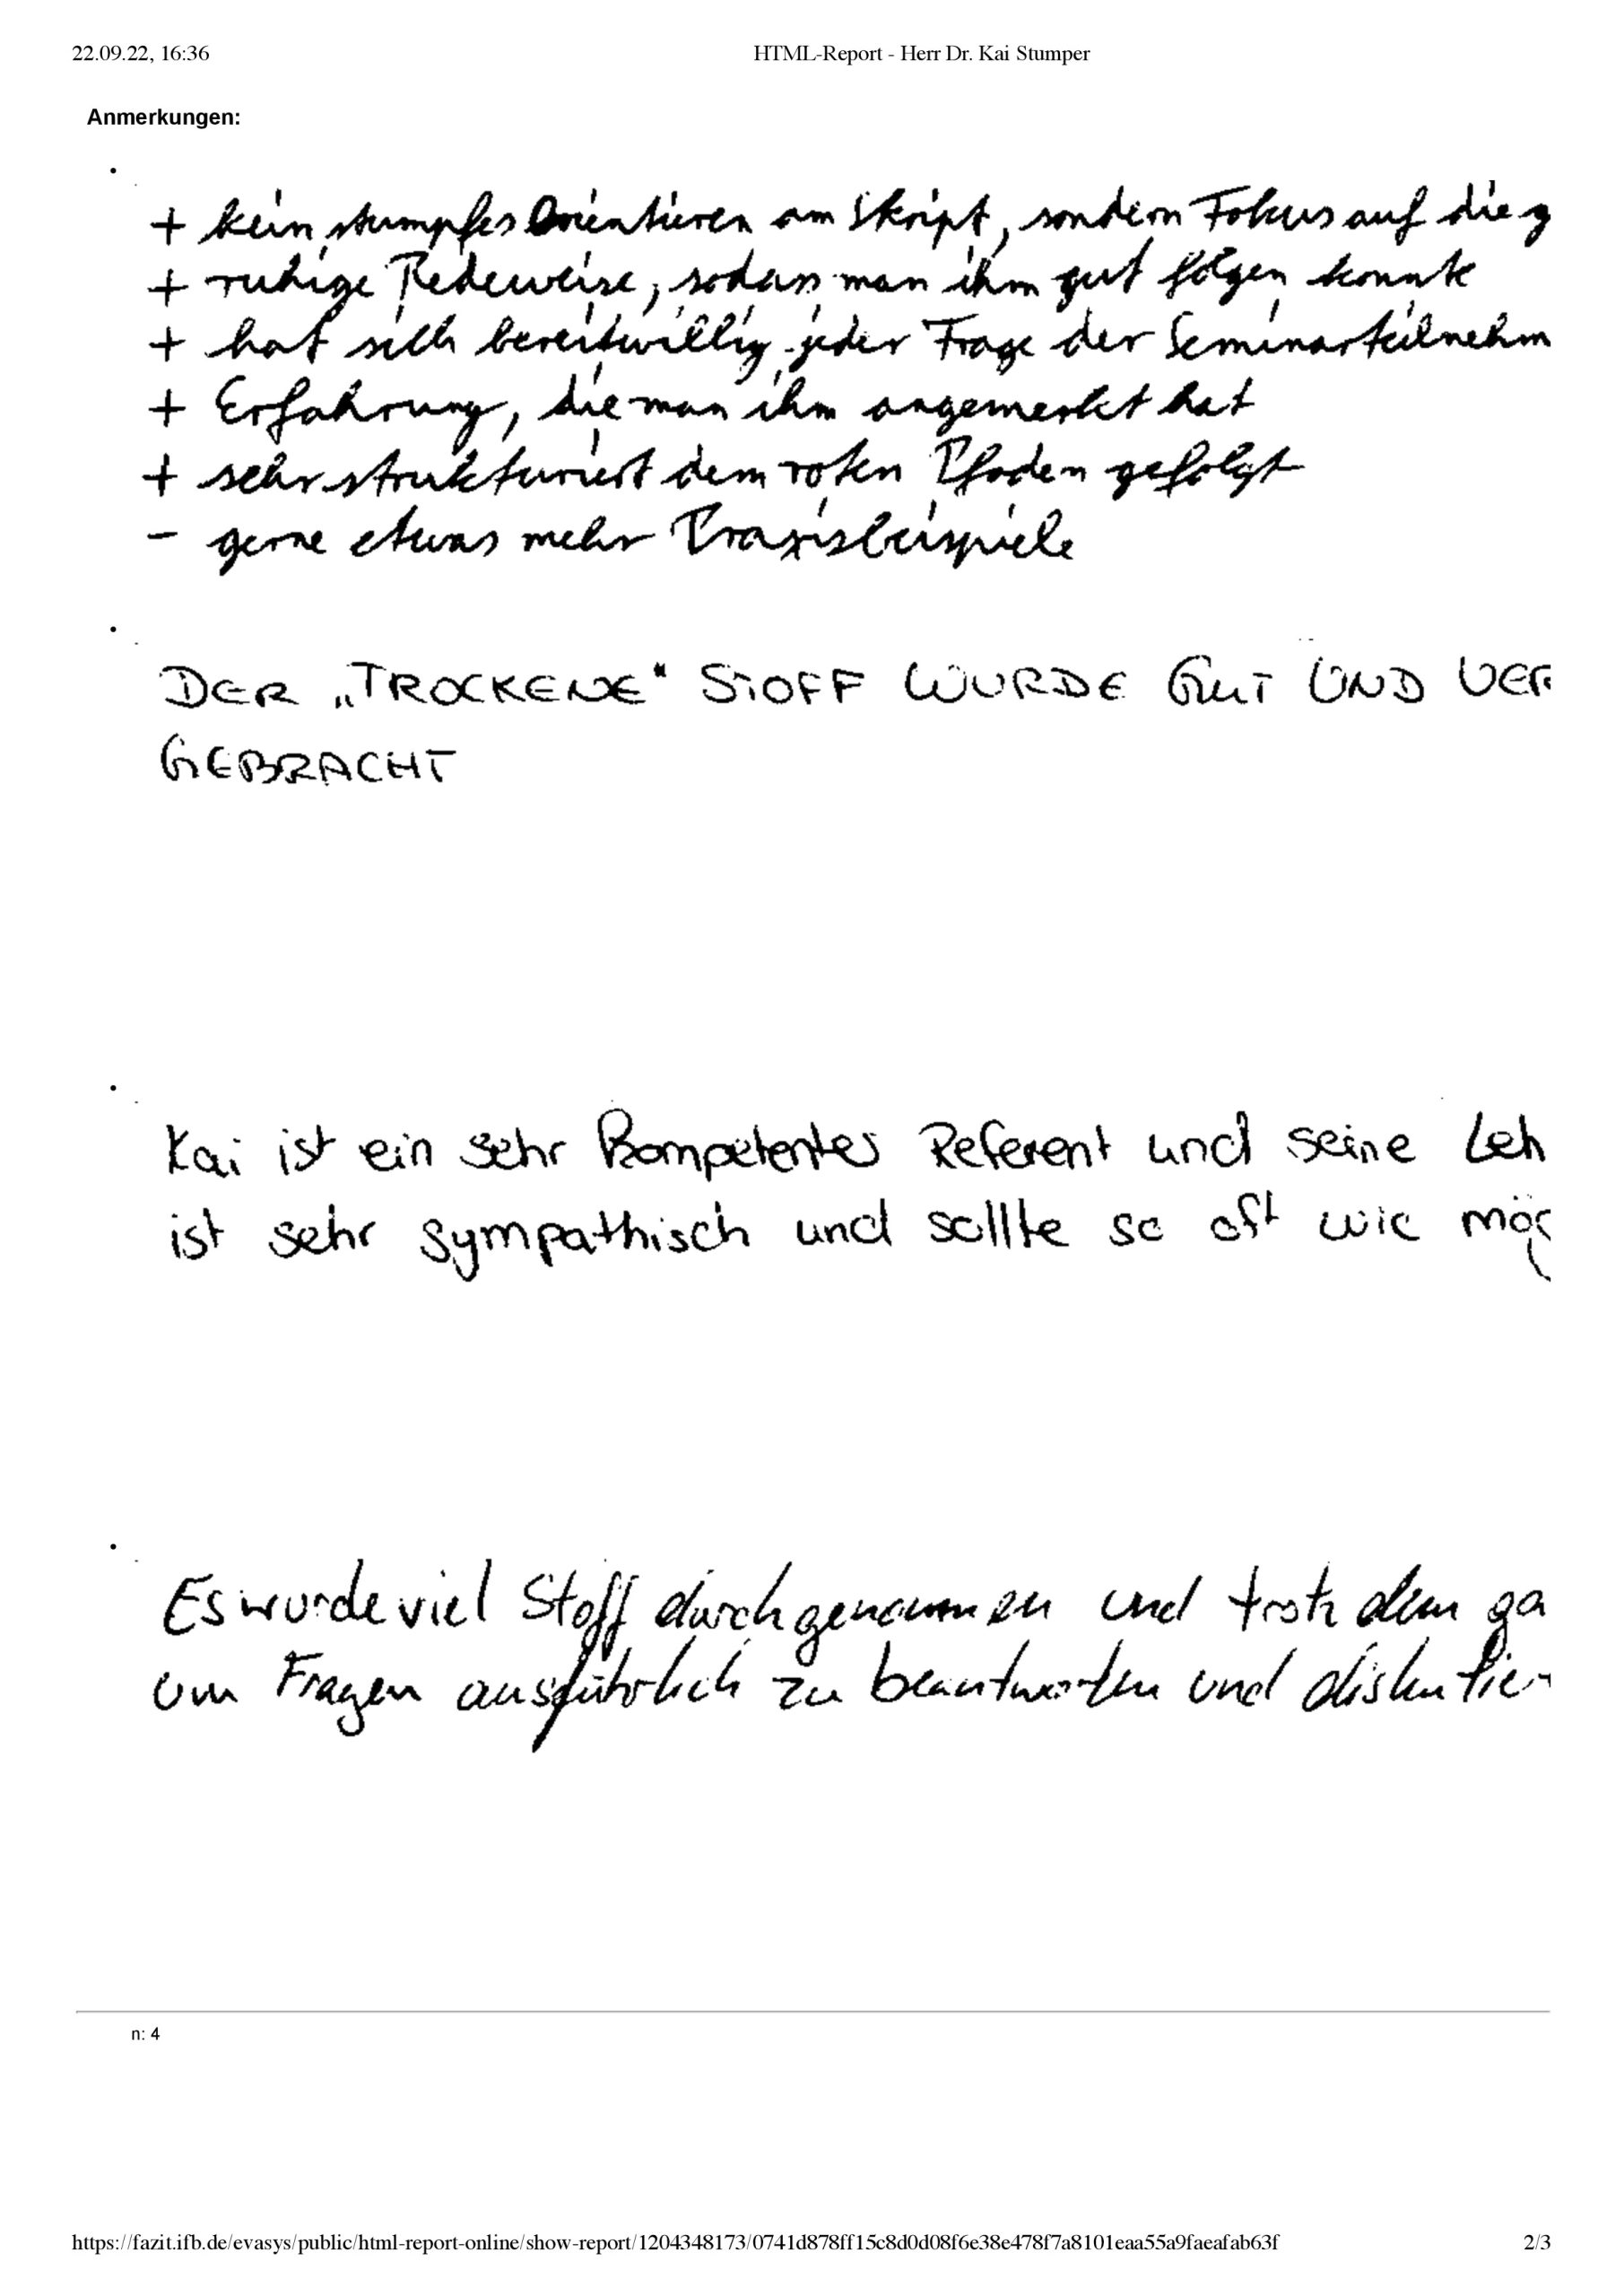 22.09.22, 16:36
HTML-Report - Herr Dr. Kai Stumper
Anmerkungen:
+ kein stumpfes Orientieren am Skript, sondern Fokus auf die g
+ ruhige Redeweise, sodass man ihm gut folgen konnte
+ hat sich bereitwillig jeder Frage der Seminarteilnehm
+ Erfahrung, die man ihm angemerkt hat
+ sehr strukturiert dem roten Pfaden gefolgt
- gerne etwas mehr Praxisbeispiele
DER „TROCKENE“ STOFF WURDE GUT UND VER
GEBRACHT
Kai ist ein sehr Kompetenter Referent und seine Leh
ist sehr sympathisch und sollte so oft wie mög
Es wurde viel Stoff durchgenommen und trotzdem ga
um Fragen ausführlich zu beantworten und diskutier
n: 4
https://fazit.ifb.de/evasys/public/html-report-online/show-report/1204348173/0741d878ff15c8d0d08f6e38e478f7a8101eaa55a9faeafab63f
2/3